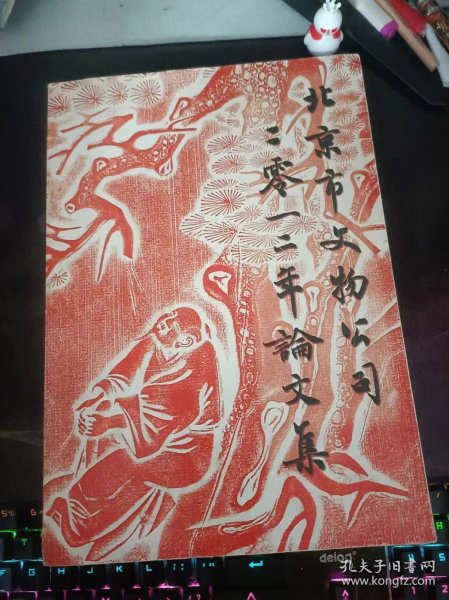 北京市文物公司
二零一二年論文集
delog
孔夫子旧书网
www.kongfz.com